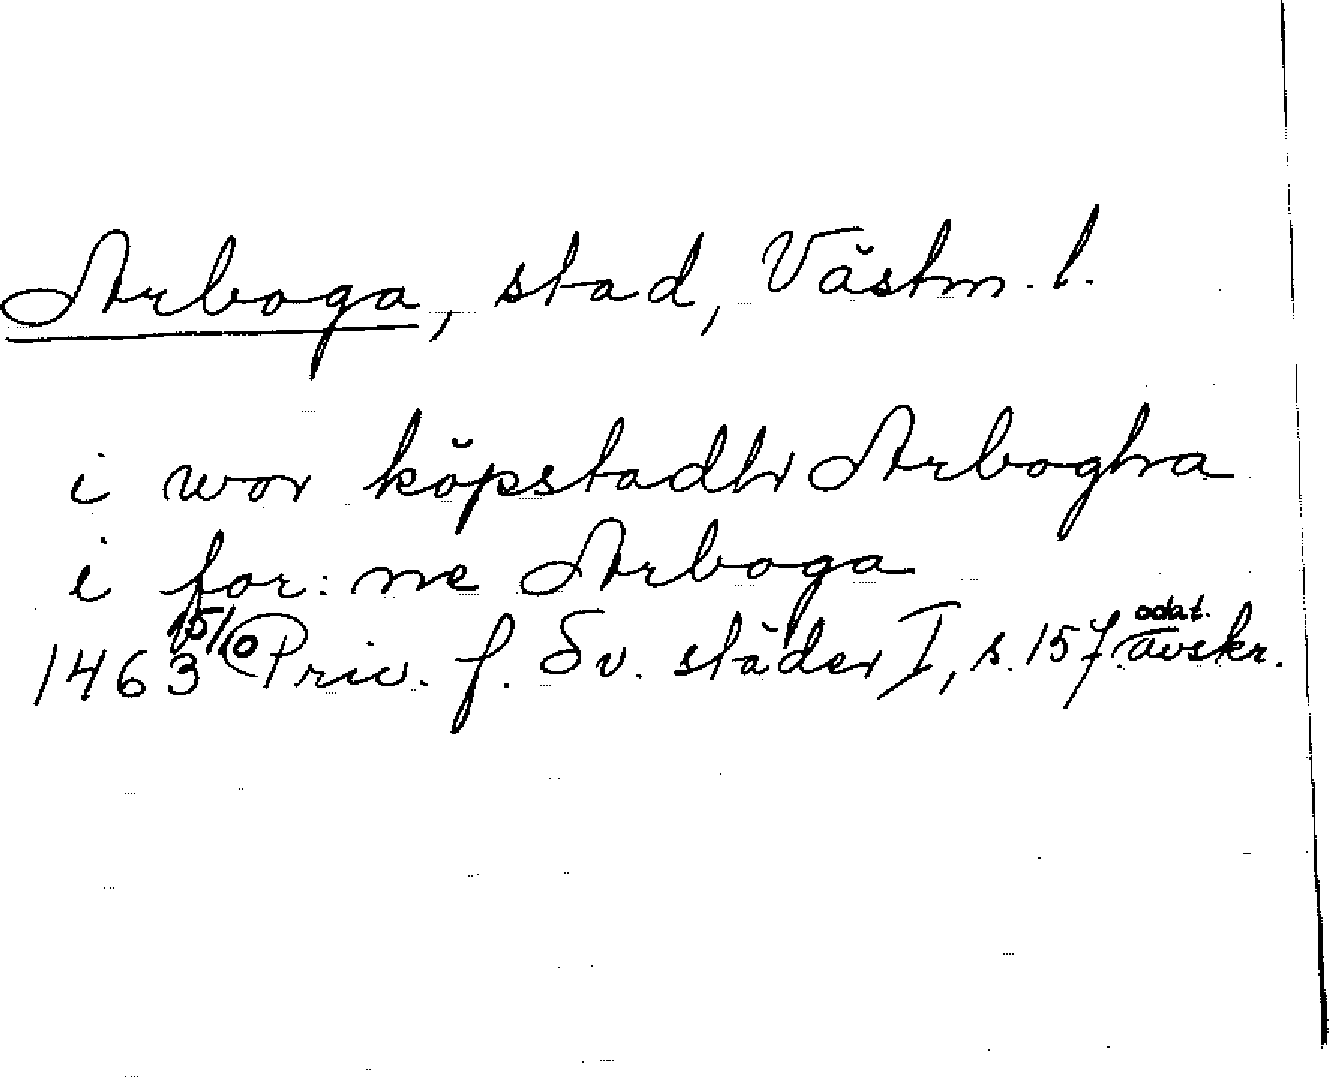 Arboga, stad, Västm. l.
i wor köpstadh Arbogha
i for: ne Arboga
1463 15/10 Priv. f. Sv. städer I, s. 157 odat. avskr.